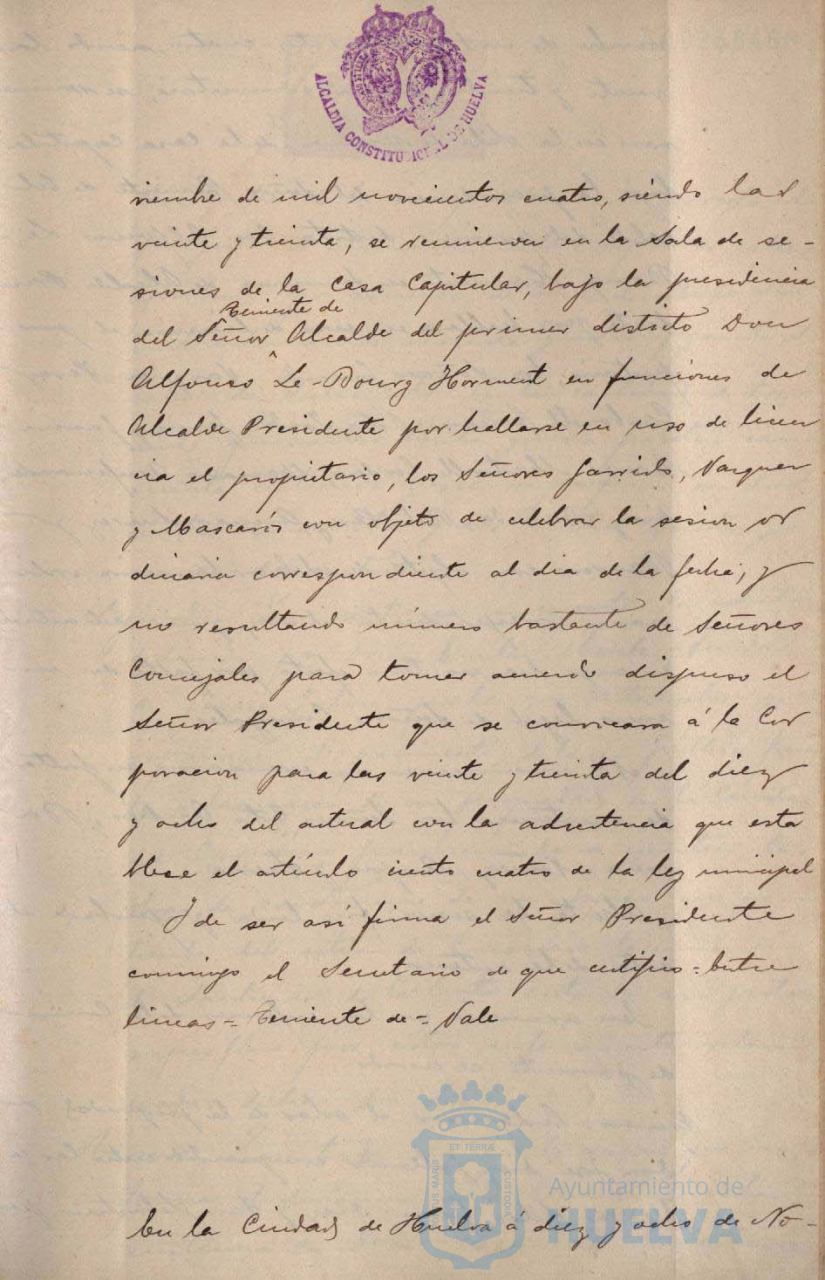 ALCALDIA CONSTITUCIONAL DE HUELVA
viembre de mil novecientos cuatro, siendo las
veinte y treinta, se reunieron en la Sala de se-
siones de la Casa Capitular, bajo la presidencia
Teniente de
del Señor Alcalde del primer distrito Don
Alfonso Le-Bourg Horment en funciones de
Alcalde Presidente por hallarse en uso de licen
cia el propietario, los Señores Garrido, Vazquez
y Mascarós con objeto de celebrar la sesion or
dinaria correspondiente al dia de la fecha; y
no resultando número bastante de Señores
Concejales para tomar acuerdo dispuso el
Señor Presidente que se convocara á la Cor
poracion para las veinte y treinta del diez
y ocho del actual con la advertencia que esta
blece el artículo ciento cuatro de la ley municipal
Y de ser así firma el Señor Presidente
conmigo el Secretario de que certifico = Entre
lineas = Teniente de = Vale
ET TERRÆ
CUSTODIA
Ayuntamiento de
HUELVA
En la Ciudad de Huelva á diez y ocho de No-